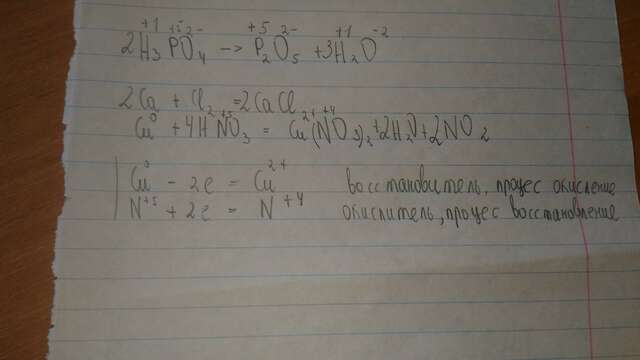 2H₃⁺¹P⁺⁵O₄²⁻ -> P₂⁺⁵O₅²⁻ + 3H₂⁺¹O⁻²
2Ca + Cl₂ = 2CaCl
Cu⁰ + 4HN⁺⁵O₃ = Cu²⁺(N⁺⁴O₃)₂ + 2H₂O + 2NO₂
Cu⁰ - 2e = Cu²⁺ восстановитель, процес окисление
N⁺⁵ + 2e = N⁺⁴ окислитель, процес восстановление